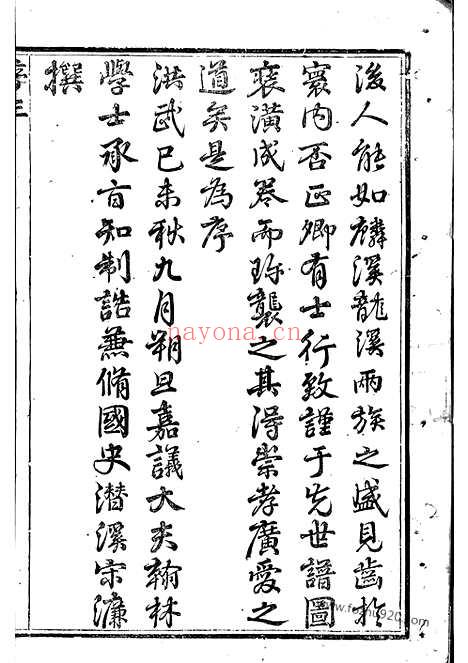 後人能如麟溪龍溪兩族之盛見齒於
寰內否正卿有士行致謹于先世譜圖
裒潢成卷而珎襲之其得崇孝廣愛之
道矣是為序
洪武己未秋九月朔旦嘉議大夫翰林
學士承旨知制誥兼脩國史潛溪宋濂
撰
nayona.cn